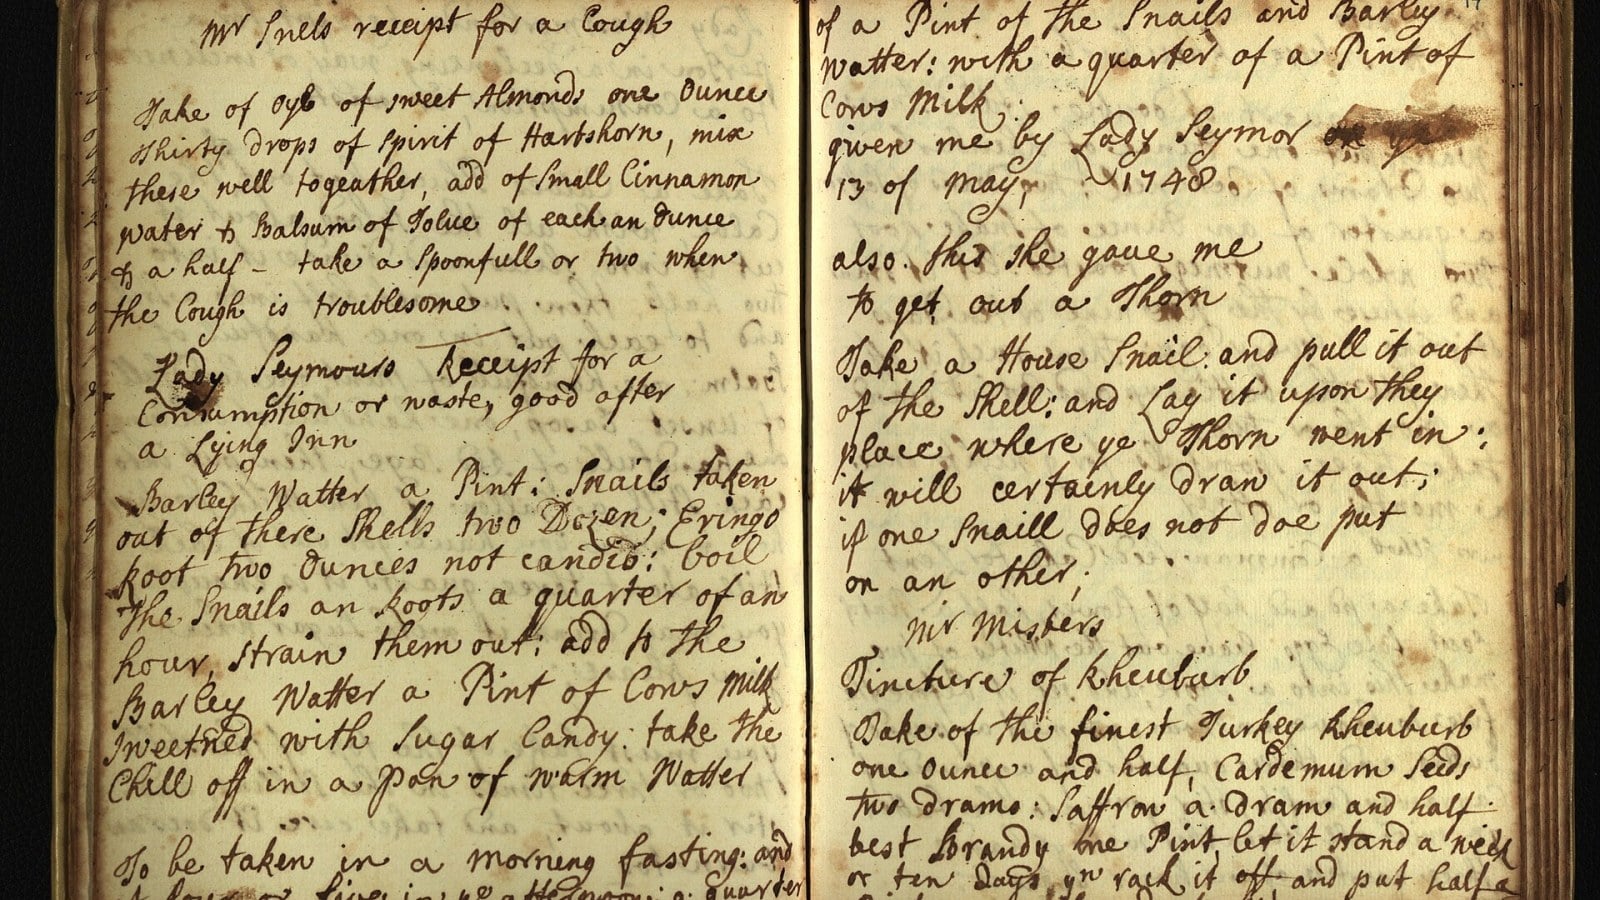 Mr Snels receipt for a Cough
Take of Oyl of sweet Almonds one Ounce
Thirty drops of spirit of Hartshorn, mix
these well togeather, add of small Cinnamon
water & Balsum of Tolue of each an Ounce
& a half - take a spoonfull or two when
the Cough is troublesome
Lady Seymours Receipt for a
Consumption or waste, good after
a Lying Inn
Barley Watter a Pint: Snails taken
out of there Shells two Dozen; Eringo
Root two Ounces not candid: boil
The Snails an Roots a quarter of an
hour, strain them out: add to the
Barley Watter a Pint of Cows Milk
Sweetned with Sugar Candy: take the
Chill off in a Pan of warm Watter
To be taken in a morning fasting: and
at four or five in ye afternoon: a quarter
of a Pint of the Snails and Barley
Watter: with a quarter of a Pint of
Cows Milk
given me by Lady Seymor
13 of May, 1748
also this she gave me
to get out a Thorn
Take a House Snail and pull it out
of the Shell: and Lay it upon they
place where ye Thorn went in:
it will certainly draw it out;
if one Snaill does not doe put
on an other;
Mr Misters
Tincture of Rheuburb
Take of the finest Turkey Rheuburb
one Ounce and half, Cardemum Seeds
two drams: Saffron a dram and half
best Brandy one Pint, let it stand a week
or ten days yn rack it off and put half a